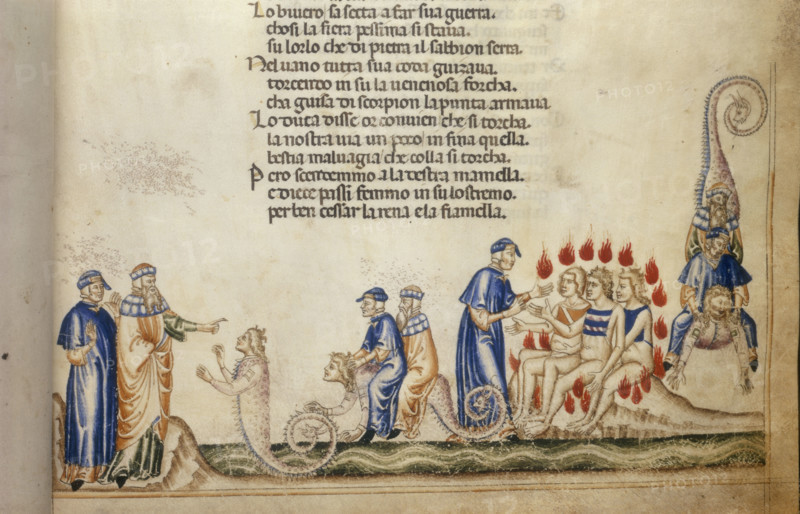 Lo bivero sa secta a far sua guerra.
chosi la fiera pessima si staua.
su lorlo che di pietra il sabbion serra.
Nel uano tutta sua coda guizaua.
torcendo in su la uenenosa forcha.
cha guisa di scorpion la punta armaua
Lo duca disse or conuien che si torcha.
la nostra uia un poco in fina quella.
bestia maluagia che colla si torcha.
Pero scendemmo a la destra mamella.
e diece passi femmo in su lostremo.
per ben cessar la rena e la fiamella.
PHOTO12
PHOTO12
PHOTO12